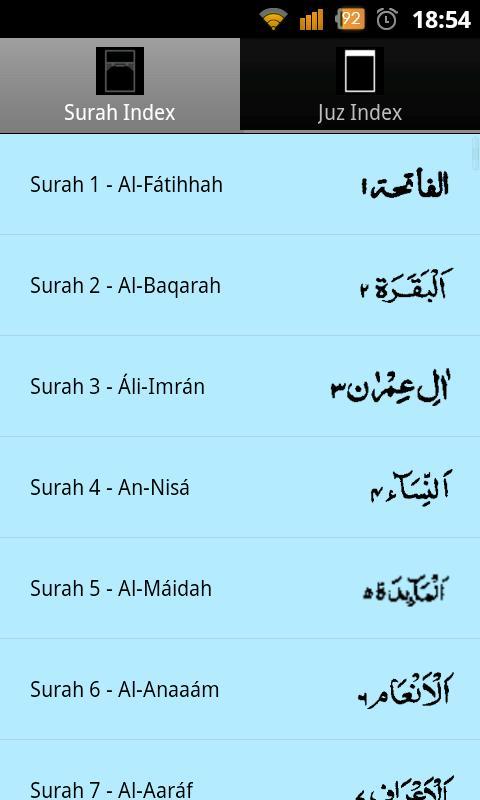 92 18:54
Surah Index Juz Index
Surah 1 - Al-Fátihhah الفاتحة ١
Surah 2 - Al-Baqarah اَلْبَقَرَة ٢
Surah 3 - Áli-Imrán اٰلِ عِمْرٰن ٣
Surah 4 - An-Nisá اَلنِّسَآء ٤
Surah 5 - Al-Máidah اَلْمَآئِدَة ٥
Surah 6 - Al-Anaaám اَلْاَنْعَام ٦
Surah 7 - Al-Aaráf اَلْاَعْرَاف ٧